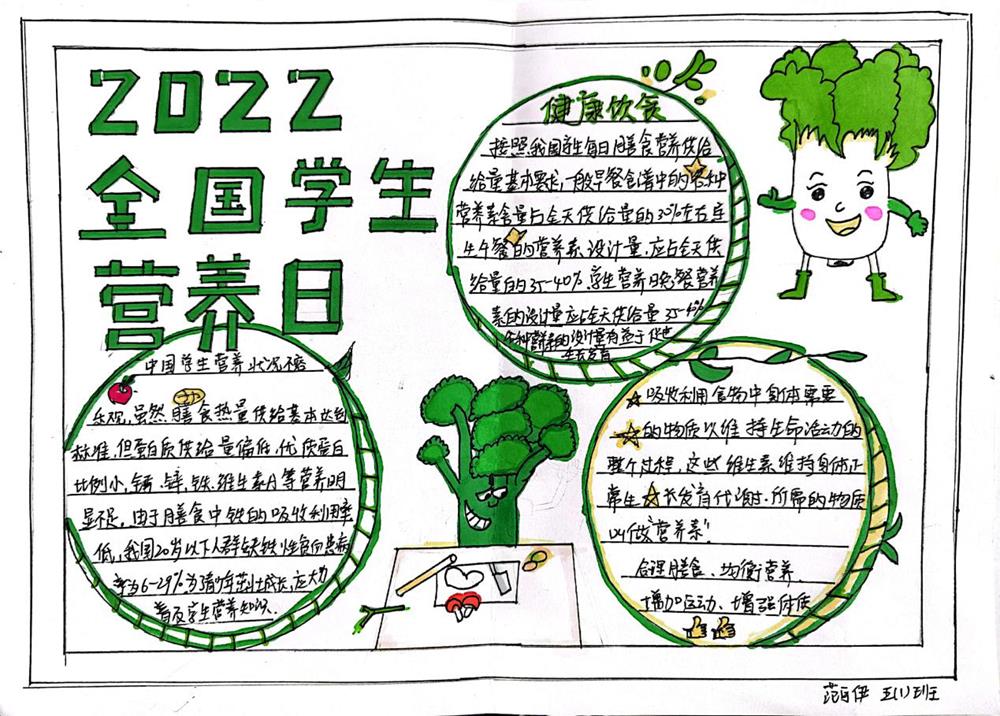 2022
全国学生
营养日
健康饮食
按照我国学生每日膳食营养供给
给量基本要求,一般早餐食谱中的各种
营养素含量占全天供给量的30%左右
生午餐的营养素设计量,应占全天供
给量的35-40%,学生营养晚餐营养
素的设计量应占全天供给量35-40%
各种营养素的设计量有益于促进
生长发育
中国学生营养状况不容
乐观,虽然膳食热量供给基本达到
标准,但蛋白质供给量偏低,优质蛋白
比例小,钙、锌、铁、维生素A等营养明
显不足,由于膳食中铁的吸收利用率
低,我国20岁以下人群缺铁性贫血患病
率为6-29%.为青少年茁壮成长,应大力
普及学生营养知识.
吸收利用食物中身体需要
的物质以维持生命活动的
整个过程,这些维生素维持身体正
常生长发育代谢所需的物质
叫做“营养素”!
合理膳食、均衡营养、
增加运动、增强体质
五(1)班